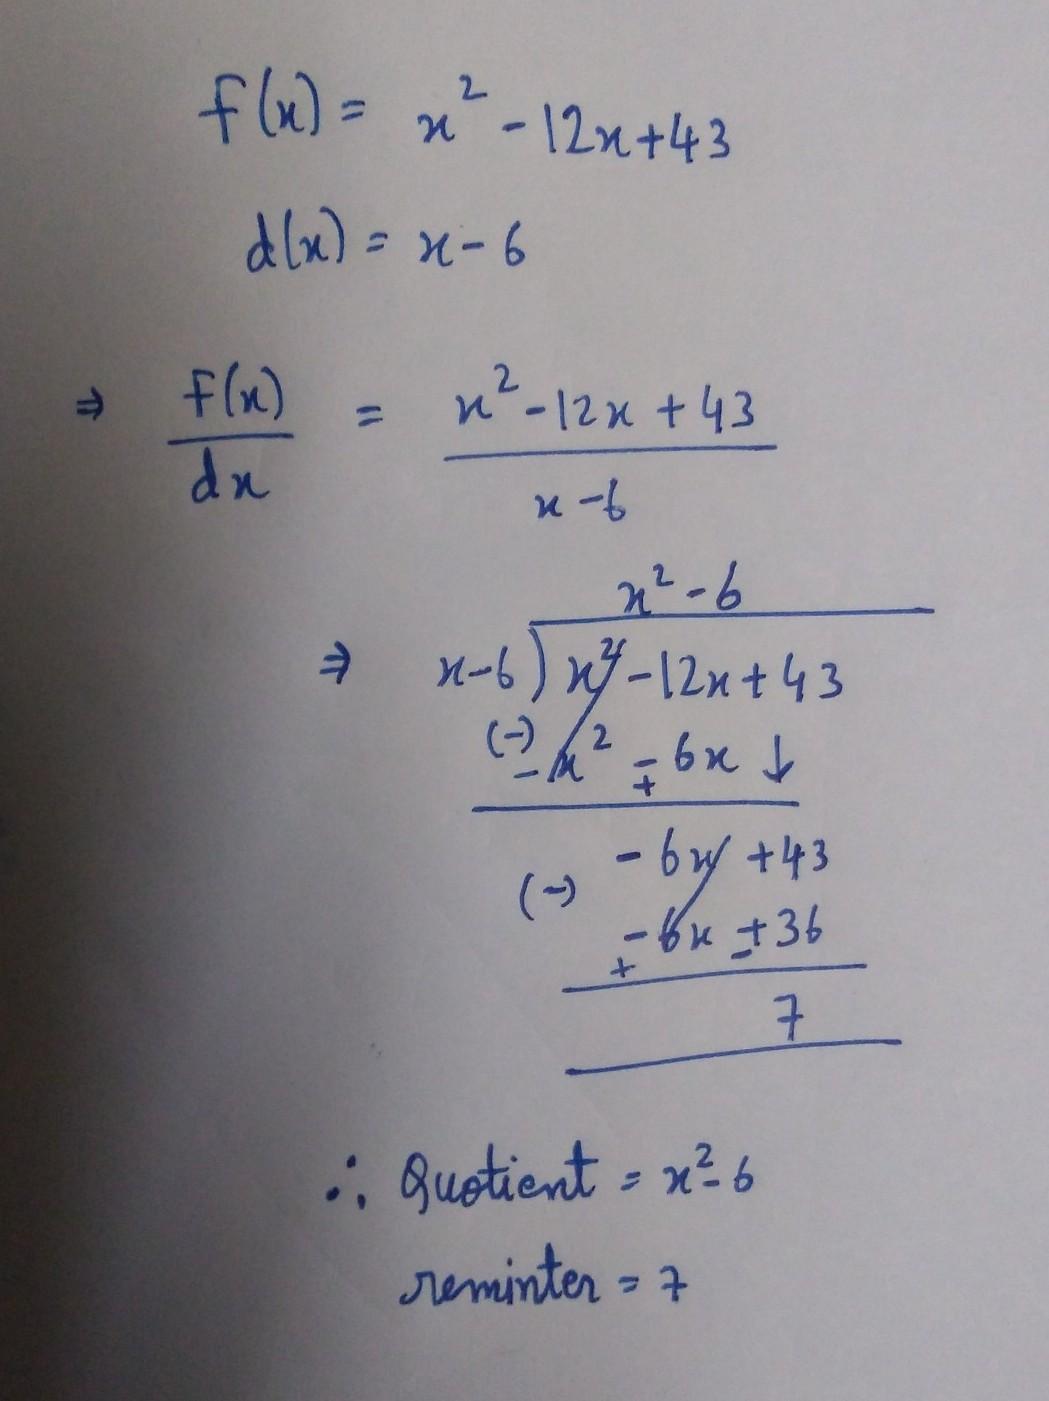 f(x) = x² - 12x + 43
d(x) = x - 6
⇒ f(x)/dx = x² - 12x + 43/x - 6
x² - 6
⇒ x - 6 ) x² - 12x + 43
(-) - x² - + 6x ↓
- 6x + 43
(-) - + 6x + - 36
7
∴ Quotient = x² - 6
reminter = 7